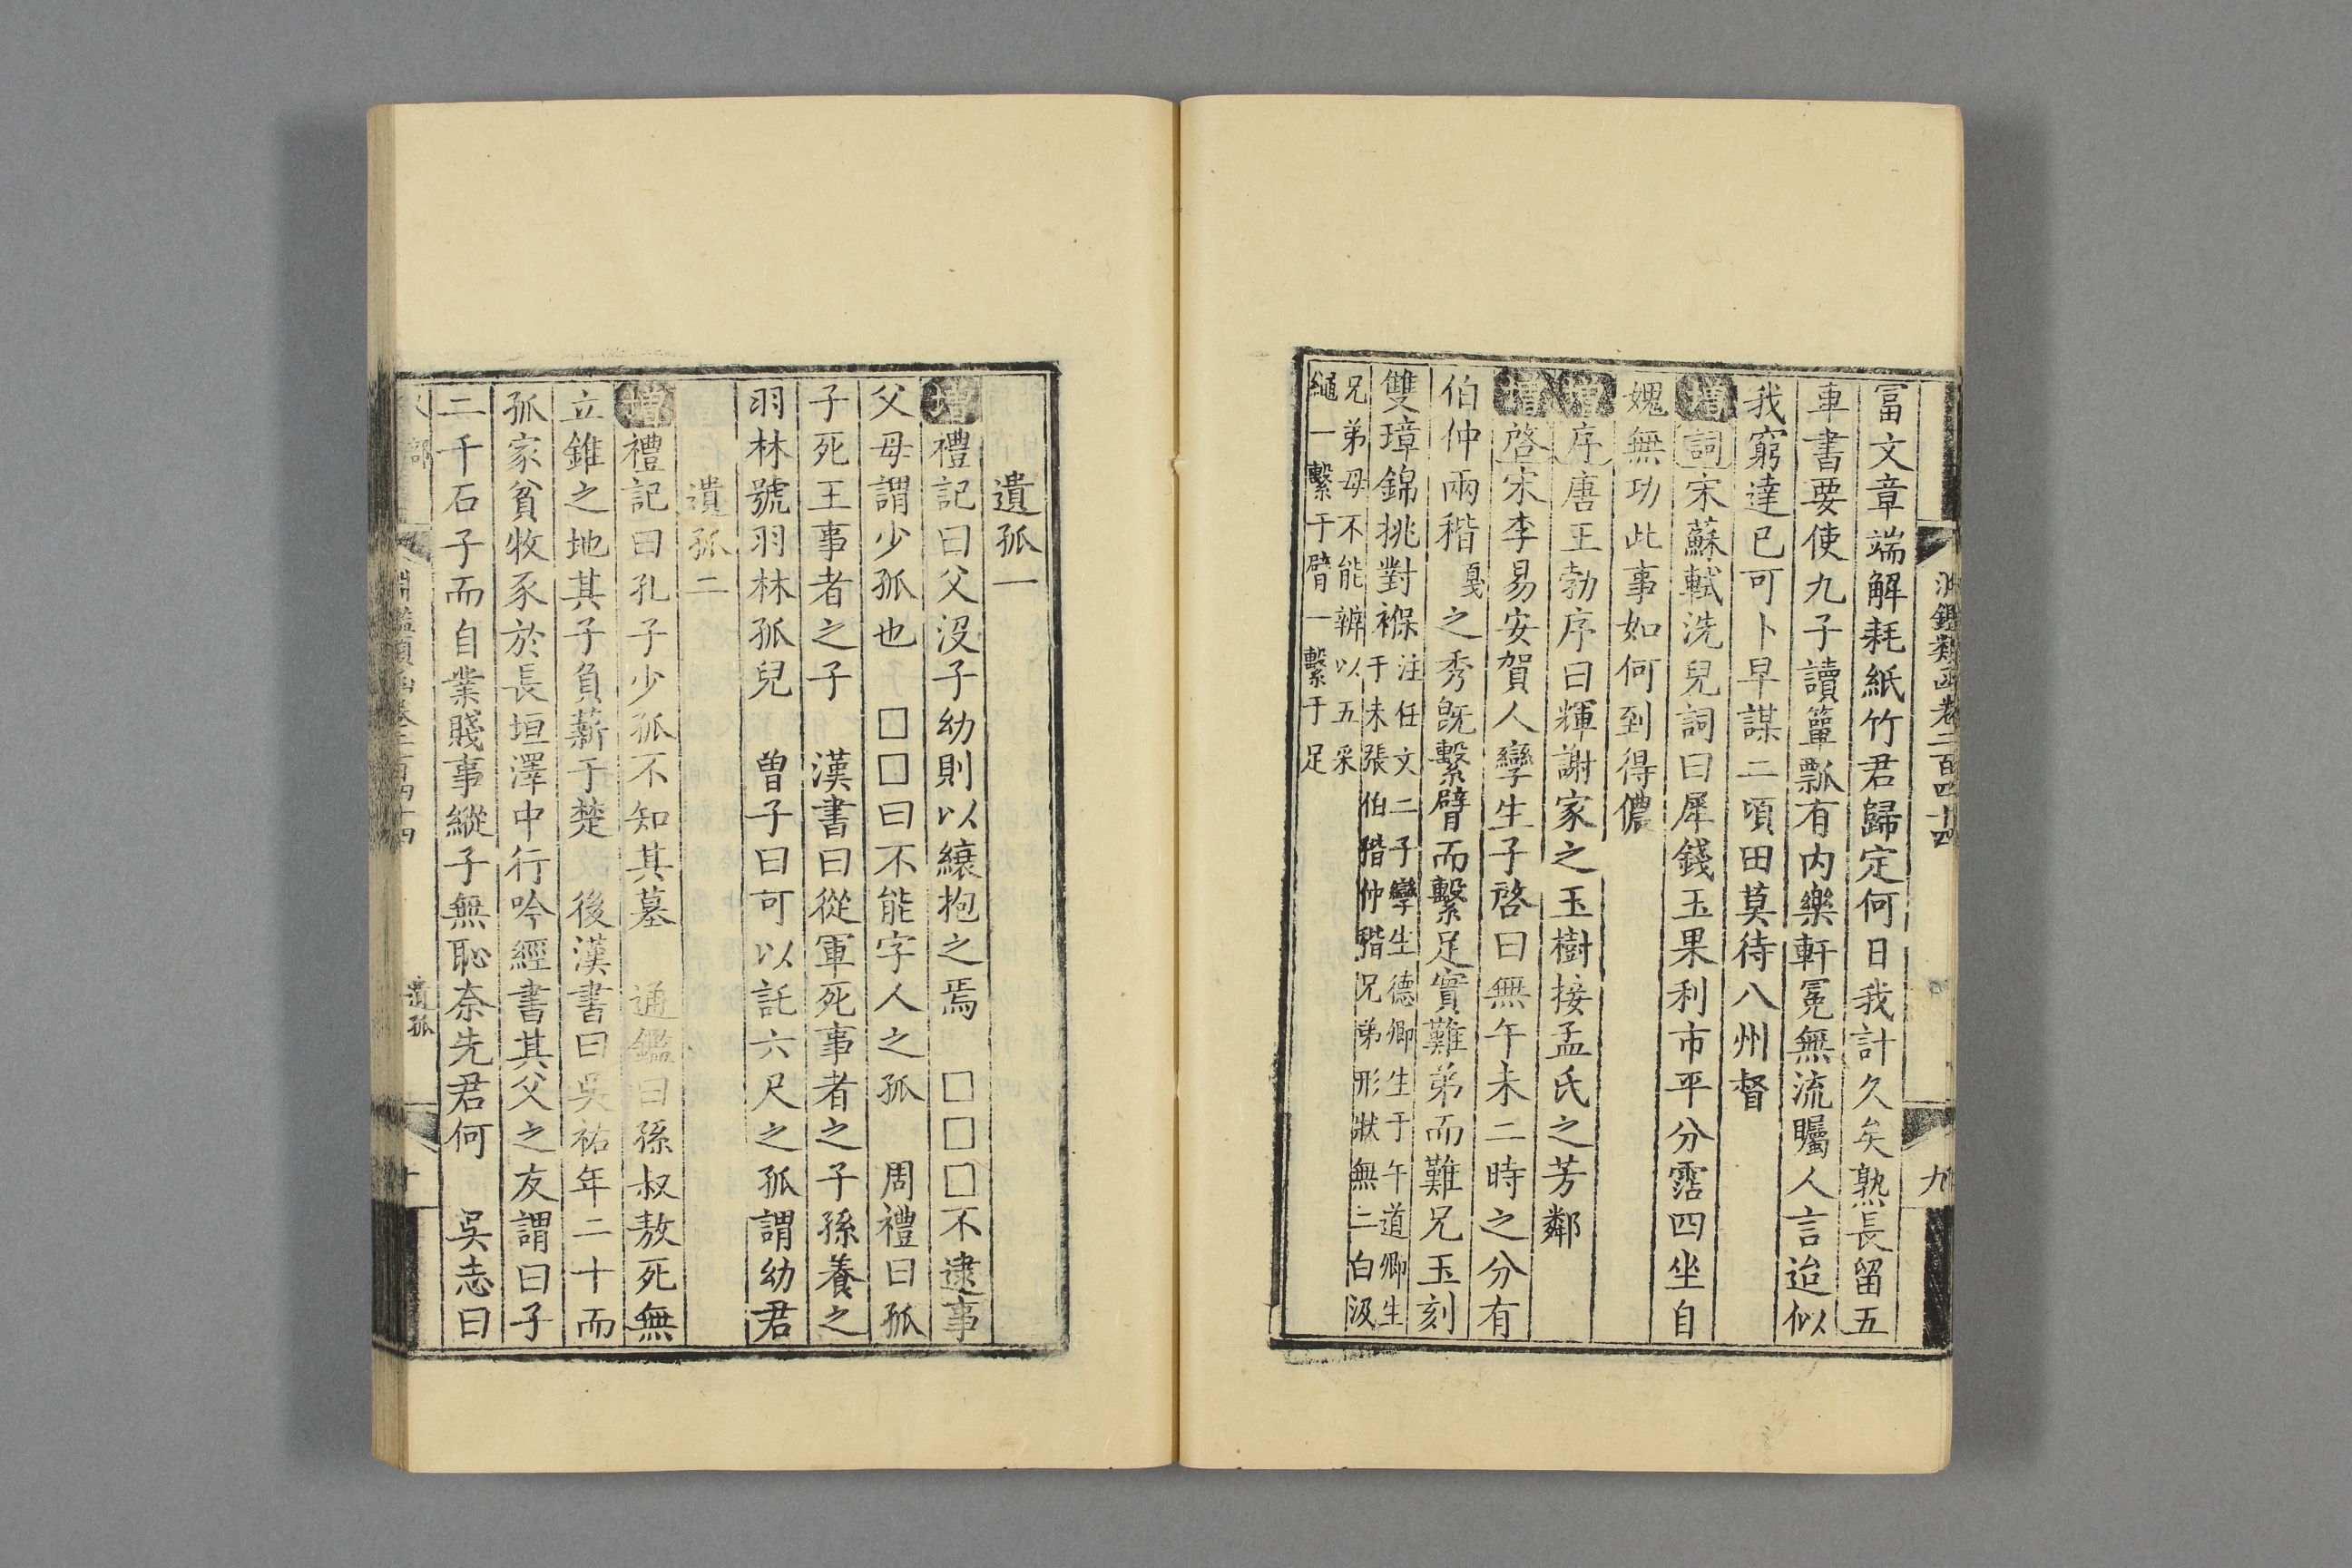 淵鑑類函卷二百四十四
九
富文章端解耗紙竹君歸定何日我計久矣熟長留五
車書要使九子讀簞瓢有内樂軒冕無流矚人言迨似
我窮達已可卜早謀二頃田莫待八州督
增詞宋蘇軾洗兒詞曰犀錢玉果利市平分霑四坐自
媿無功此事如何到得儂
增序唐王勃序曰輝謝家之玉樹接孟氏之芳鄰
增啓宋李易安賀人孿生子啓曰無午未二時之分有
伯仲兩稭戛之秀旣繫臂而繫足實難弟而難兄玉刻
雙璋錦挑對褓
注任文二子孿生德卿生于午道卿生
于未張伯稭仲稭兄弟形狀無二白汲
兄弟母不能辨以五采
繩一繫于臂一繫于足
遺孤一
增禮記曰父没子幼則以縗抱之焉　□□□不逮事
父母謂少孤也　□□曰不能字人之孤　周禮曰孤
子死王事者之子　漢書曰從軍死事者之子孫養之
羽林號羽林孤兒　曾子曰可以託六尺之孤謂幼君
遺孤二
增禮記曰孔子少孤不知其墓　通鑑曰孫叔敖死無
立錐之地其子負薪于楚　後漢書曰吳祐年二十而
孤家貧牧豕於長垣澤中行吟經書其父之友謂曰子
二千石子而自業賤事縱子無恥奈先君何　吳志曰
淵鑑類函卷二百四十四
遺孤
十